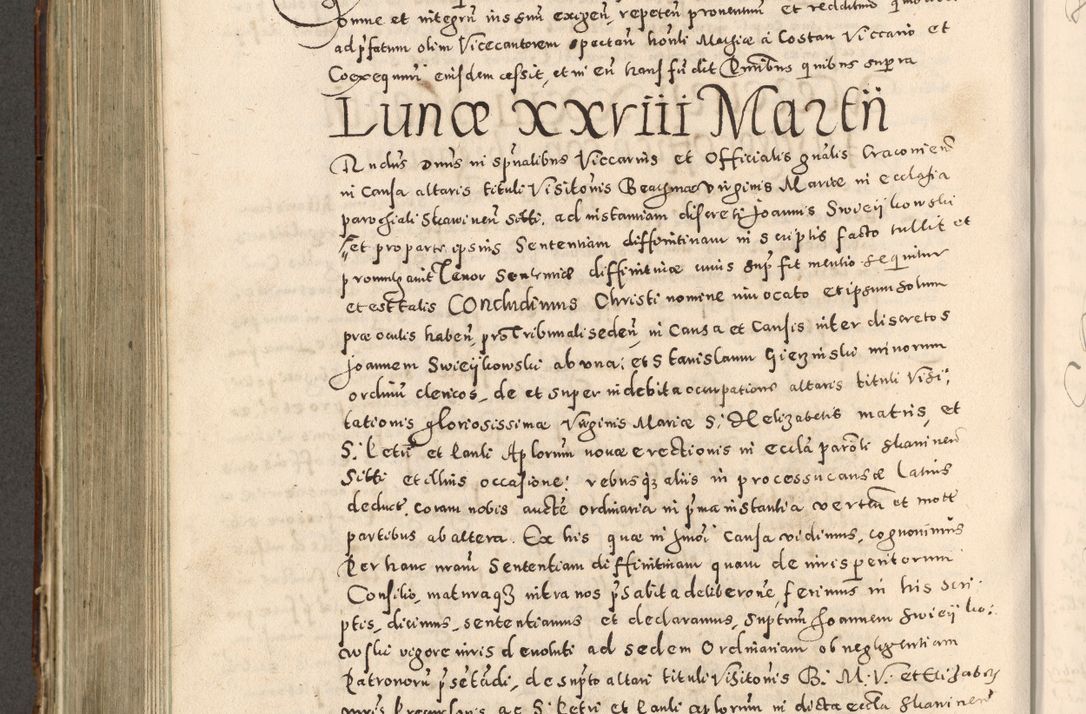 omne et integrũ ius suũ exigeñ repeteñ proventuũ et redditus
ad p̃fatum olim Vicecantorem spectañ hoñli Mathiæ à Costan Viccario et
Coexequuni eiusdem cessit, et in eũ transfudit P̃ntibus quibus supra
Lunæ XXVIII Martii
R̃ndus dñus in sp̃ualibus Viccarius et Officialis gñalis Cracovieñ
in Causa altaris tituli Visitõnis Beatissimæ Virginis Mariæ in ecclesia
parochiali Skawineñ Sitti, ad instantiam discreti Joannis Swieijkowski
et pro parte ipsius Sententiam diffinitivam in scriptis facto tullit et
promulgavit Tenor Sententiæ diffinitivæ cuius sup̃ fit mentio sequitur
et est talis Concludimus Christi nomine invocato et ipsum solum
præ oculis habeñ pro Tribunali sedeñ in Causa et Causis inter discretos
Joannem Swieijkowski ab una: et Stanislaum Gierzinski minorum
ordinũ clericos, de et super indebita occupatione altaris tituli Visi:
tationis gloriosissimæ Virginis Mariæ S: Helizabetis matris, et
S: Petri et Pauli Ap̃lorum novæ erectionis in eccl̃a parõli Skawineñ
Sitti et illius occasione: rebusq̃ aliis in processu causæ latius
deduct. coram nobis aucte ordinaria in p̃ma instantia verteñ et mott
partibus ab altera. Ex his quæ in hm̃õi Causa vidimus, cognovimus
Per hanc nr̃am Sententiam diffinitivam quam de iurisperitorum
Consilio, maturaq̃ intra nos p̃habita deliberõne, ferimus in his scri:
ptis, dicimus, sententiamus et declaramus, sup̃tum Joannem Swieijko:
wski vigore iuris devoluti ad sedem Ordinariam ob negligentiam
Patronorũ p̃sentãdi, de sup̃to altari tituli Visitõnis B. M. V. et Elizabet
matris Præcursoris ac S: Petri et Pauli Ap̃lorum in dicta eccl̃a Skawineñ